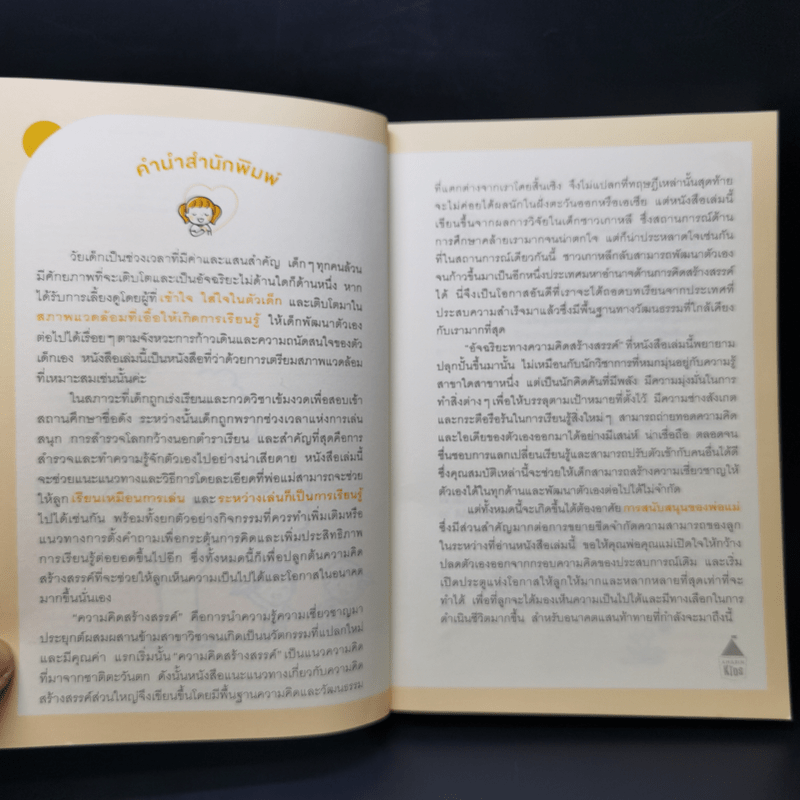 คำนำสำนักพิมพ์
วัยเด็กเป็นช่วงเวลาที่มีค่าและแสนสำคัญ เด็กๆ ทุกคนล้วน
มีศักยภาพที่จะเติบโตและเป็นอัจฉริยะไม่ด้านใดก็ด้านหนึ่ง หาก
ได้รับการเลี้ยงดูโดยผู้ที่ เข้าใจ ใส่ใจในตัวเด็ก และเติบโตมาใน
สภาพแวดล้อมที่เอื้อให้เกิดการเรียนรู้ ให้เด็กพัฒนาตัวเอง
ต่อไปได้เรื่อยๆ ตามจังหวะการก้าวเดินและความถนัดสนใจของตัว
เด็กเอง หนังสือเล่มนี้เป็นหนังสือที่ว่าด้วยการเตรียมสภาพแวดล้อม
ที่เหมาะสมเช่นนั้นค่ะ
ในสภาวะที่เด็กถูกเร่งเรียนและกวดวิชาเข้มงวดเพื่อสอบเข้า
สถานศึกษาชื่อดัง ระหว่างนั้นเด็กถูกพรากช่วงเวลาแห่งการเล่น
สนุก การสำรวจโลกกว้างนอกตำราเรียน และสำคัญที่สุดคือการ
สำรวจและทำความรู้จักตัวเองไปอย่างน่าเสียดาย หนังสือเล่มนี้
จะช่วยแนะแนวทางและวิธีการโดยละเอียดที่พ่อแม่สามารถจะช่วย
ให้ลูก เรียนเหมือนการเล่น และ ระหว่างเล่นก็เป็นการเรียนรู้
ไปได้เช่นกัน พร้อมทั้งยกตัวอย่างกิจกรรมที่ควรทำเพิ่มเติมหรือ
แนวทางการตั้งคำถามเพื่อกระตุ้นการคิดและเพิ่มประสิทธิภาพ
การเรียนรู้ต่อยอดขึ้นไปอีก ซึ่งทั้งหมดนี้ก็เพื่อปลูกต้นความคิด
สร้างสรรค์ที่จะช่วยให้ลูกเห็นความเป็นไปได้และโอกาสในอนาคต
มากขึ้นนั่นเอง
“ความคิดสร้างสรรค์” คือการนำความรู้ความเชี่ยวชาญมา
ประยุกต์ผสมผสานข้ามสาขาวิชาจนเกิดเป็นนวัตกรรมที่แปลกใหม่
และมีคุณค่า แรกเริ่มนั้น “ความคิดสร้างสรรค์” เป็นแนวความคิด
ที่มาจากชาติตะวันตก ดังนั้นหนังสือแนะแนวทางเกี่ยวกับความคิด
สร้างสรรค์ส่วนใหญ่จึงเขียนขึ้นโดยมีพื้นฐานความคิดและวัฒนธรรม
ที่แตกต่างจากเราโดยสิ้นเชิง จึงไม่แปลกที่ทฤษฎีเหล่านั้นสุดท้าย
จะไม่ค่อยได้ผลนักในฝั่งตะวันออกหรือเอเชีย แต่หนังสือเล่มนี้
เขียนขึ้นจากผลการวิจัยในเด็กชาวเกาหลี ซึ่งสถานการณ์ด้าน
การศึกษาคล้ายเรามากจนน่าตกใจ แต่ก็น่าประหลาดใจเช่นกัน
ที่ในสถานการณ์เดียวกันนี้ ชาวเกาหลีกลับสามารถพัฒนาตัวเอง
จนก้าวขึ้นมาเป็นอีกหนึ่งประเทศมหาอำนาจด้านการคิดสร้างสรรค์
ได้ นี่จึงเป็นโอกาสอันดีที่เราจะได้ถอดบทเรียนจากประเทศที่
ประสบความสำเร็จมาแล้วซึ่งมีพื้นฐานทางวัฒนธรรมที่ใกล้เคียง
กับเรามากที่สุด
“อัจฉริยะทางความคิดสร้างสรรค์” ที่หนังสือเล่มนี้พยายาม
ปลุกปั้นขึ้นมานั้น ไม่เหมือนกับนักวิชาการที่หมกมุ่นอยู่กับความรู้
สาขาใดสาขาหนึ่ง แต่เป็นนักคิดค้นที่มีพลัง มีความมุ่งมั่นในการ
ทำสิ่งต่างๆ เพื่อให้บรรลุตามเป้าหมายที่ตั้งไว้ มีความช่างสังเกต
และกระตือรือร้นในการเรียนรู้สิ่งใหม่ๆ สามารถถ่ายทอดความคิด
และไอเดียของตัวเองออกมาได้อย่างมีเสน่ห์ น่าเชื่อถือ ตลอดจน
ชื่นชอบการแลกเปลี่ยนเรียนรู้และสามารถปรับตัวเข้ากับคนอื่นได้ดี
ซึ่งคุณสมบัติเหล่านี้จะช่วยให้เด็กสามารถสร้างความเชี่ยวชาญให้
ตัวเองได้ในทุกด้านและพัฒนาตัวเองต่อไปได้ไม่จำกัด
แต่ทั้งหมดนี้จะเกิดขึ้นได้ต้องอาศัย การสนับสนุนของพ่อแม่
ซึ่งมีส่วนสำคัญมากต่อการขยายขีดจำกัดความสามารถของลูก
ในระหว่างที่อ่านหนังสือเล่มนี้ ขอให้คุณพ่อคุณแม่เปิดใจให้กว้าง
ปลดตัวเองออกจากกรอบความคิดของประสบการณ์เดิม และเริ่ม
เปิดประตูแห่งโอกาสให้ลูกให้มากและหลากหลายที่สุดเท่าที่จะ
ทำได้ เพื่อที่ลูกจะได้มองเห็นความเป็นไปได้และมีทางเลือกในการ
ดำเนินชีวิตมากขึ้น สำหรับอนาคตแสนท้าทายที่กำลังจะมาถึงนี้
Kids